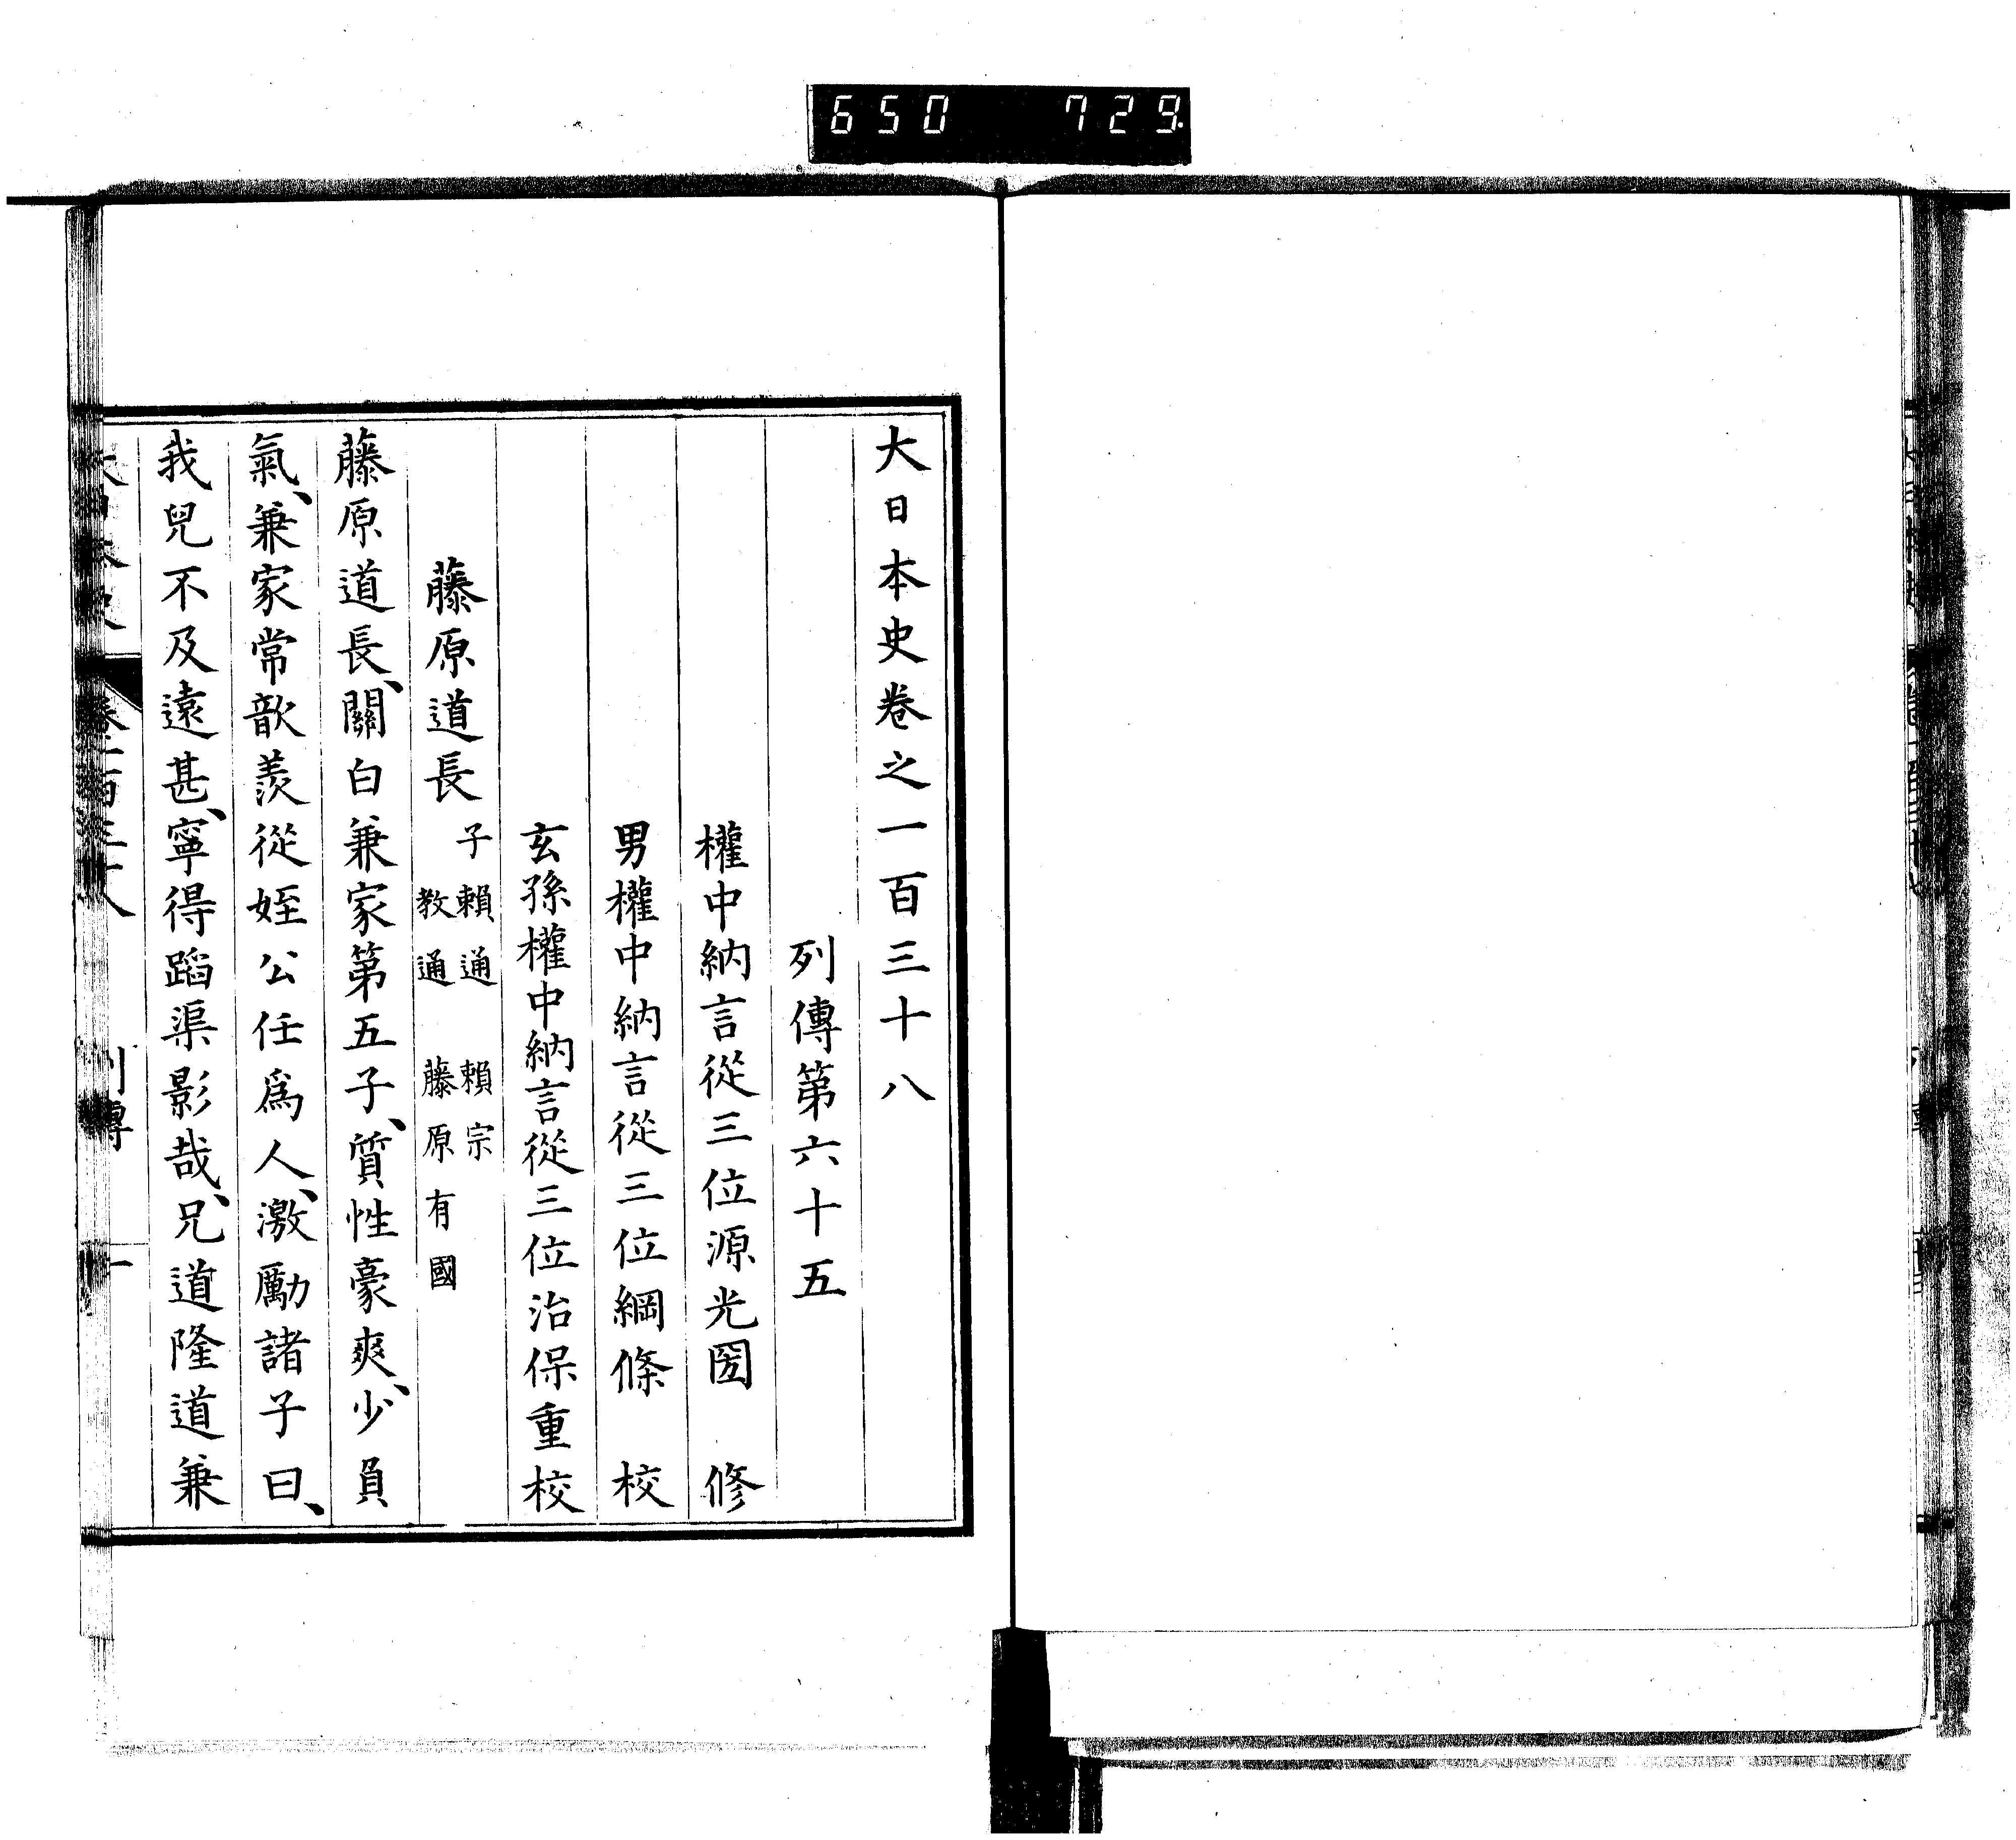 650 729.
大日本史卷之一百三十八
列傳第六十五
權中納言從三位源光圀 修
男權中納言從三位綱條 校
玄孫權中納言從三位治保重校
藤原道長 子賴通 賴宗
教通 藤原有國
藤原道長、關白兼家第五子、質性豪爽、少負
氣、兼家常歆羨從姪公任爲人、激勵諸子曰、
我兒不及遠甚、寧得蹈渠影哉、兄道隆道兼